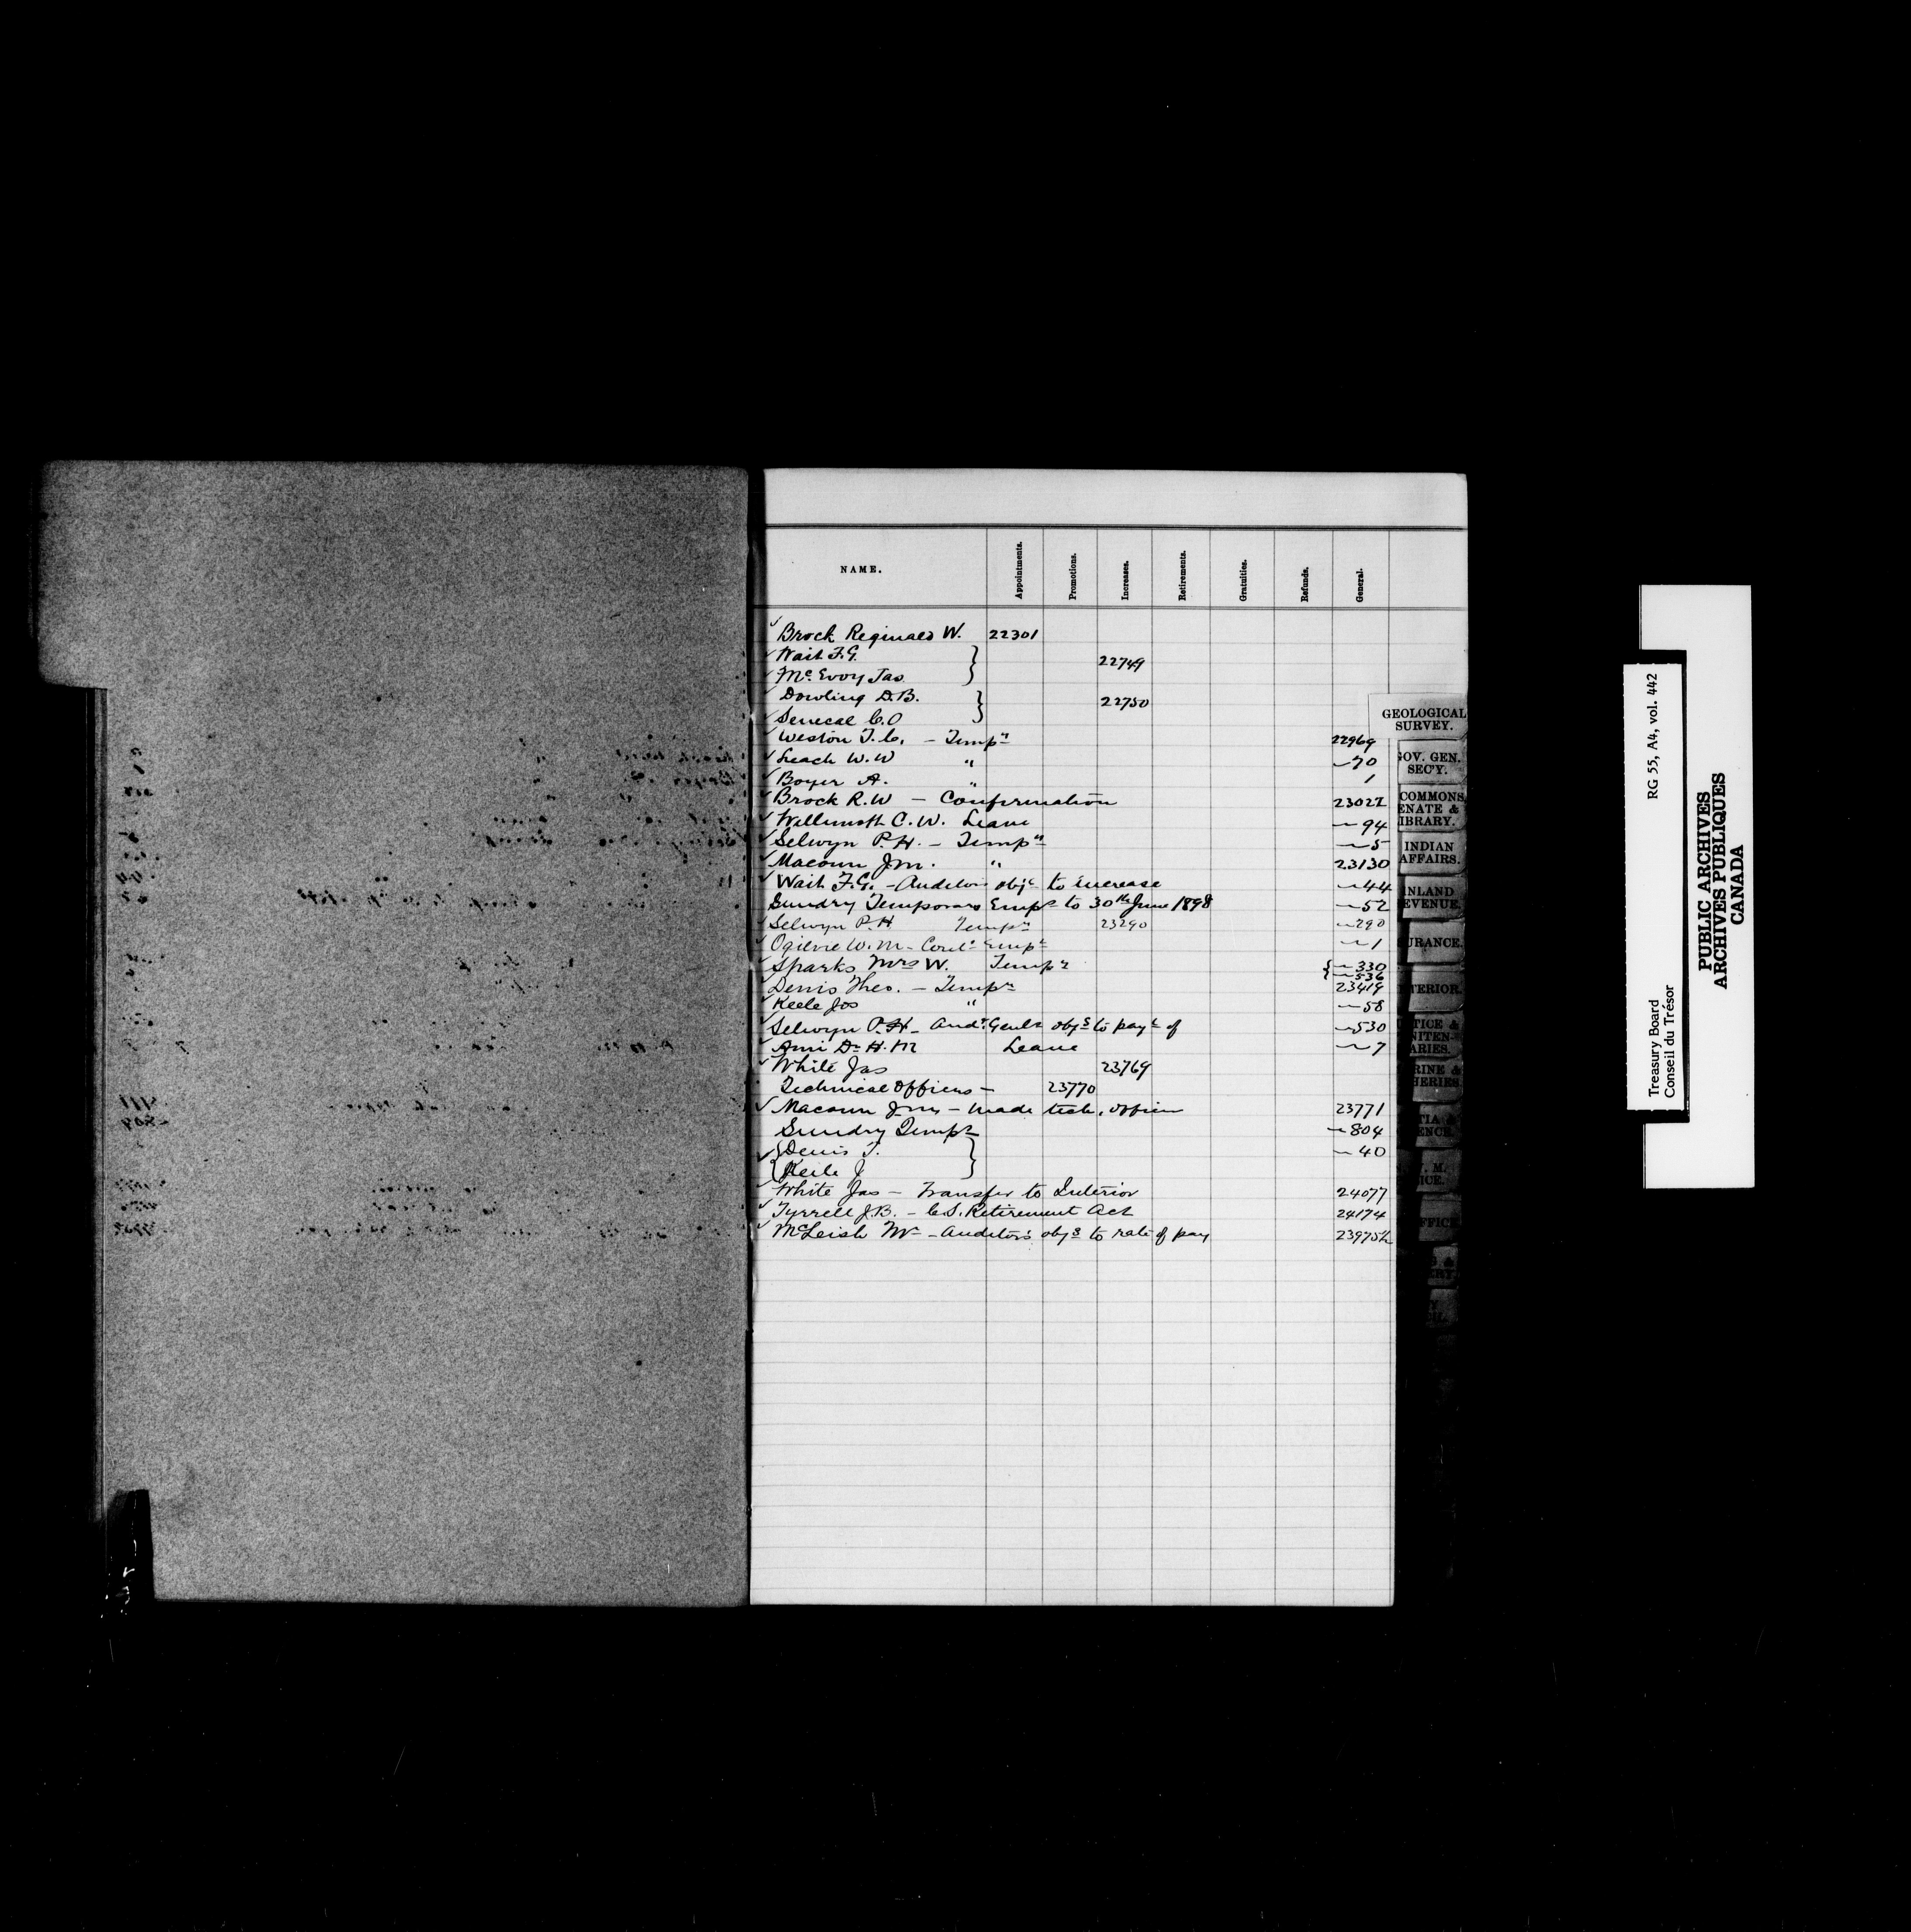 NAME. Appointments. Promotions. Increases. Retirements. Gratuities. Refunds. General.
✓ Brock Reginald W. 22301
✓ Wait F.G. } 22749
✓ McEvoy Jas }
✓ Dowling D.B. } 22750
✓ Senecal C.O }
✓ Weston T.C. – Tempy 22969
✓ Leach W.W " ~70
✓ Boyer A. " 1
✓ Brock R.W – Confirmation 23022
✓ Willimott C.W. Leave ~94
✓ Selwyn P.H. – Tempy ~5
✓ Macoun J.M. " 23130
✓ Wait F.G. – Auditors objn to increase ~44
Sundry Temporary Emps to 30th June 1898 ~52
✓ Selwyn P.H Tempy 23290 ~290
✓ Ogilvie W.M – Contd Empt ~1
✓ Sparks Mrs W. Tempy { ~330
{ ~536
✓ Denis Theo. – Tempy 23419
✓ Keele Jos " ~58
✓ Selwyn P.H – Audr Genls objs to payt of ~530
✓ Ami Dr H.M Leave ~7
✓ White Jas 23769
Technical Officers – 23770
✓ Macoun Jno – made tech. officer 23771
Sundry Temps ~804
✓ { Denis T. } ~40
{ Keele J }
✓ White Jas – Transfer to Interior 24077
✓ Tyrrell J.B. – C.S. Retirement Act 24174
✓ McLeish Mr – Auditor's objs to rate of pay 23975½
GEOLOGICAL SURVEY.
GOV. GEN. SEC'Y.
COMMONS
ENATE &
IBRARY.
INDIAN AFFAIRS.
INLAND
EVENUE.
URANCE.
TERIOR.
TICE &
NITEN-
ARIES.
RINE &
HERIES.
TIA &
ENCE.
. M.
ICE.
FFICE
Treasury Board RG 55, A4, vol. 442
Conseil du Trésor
PUBLIC ARCHIVES
ARCHIVES PUBLIQUES
CANADA